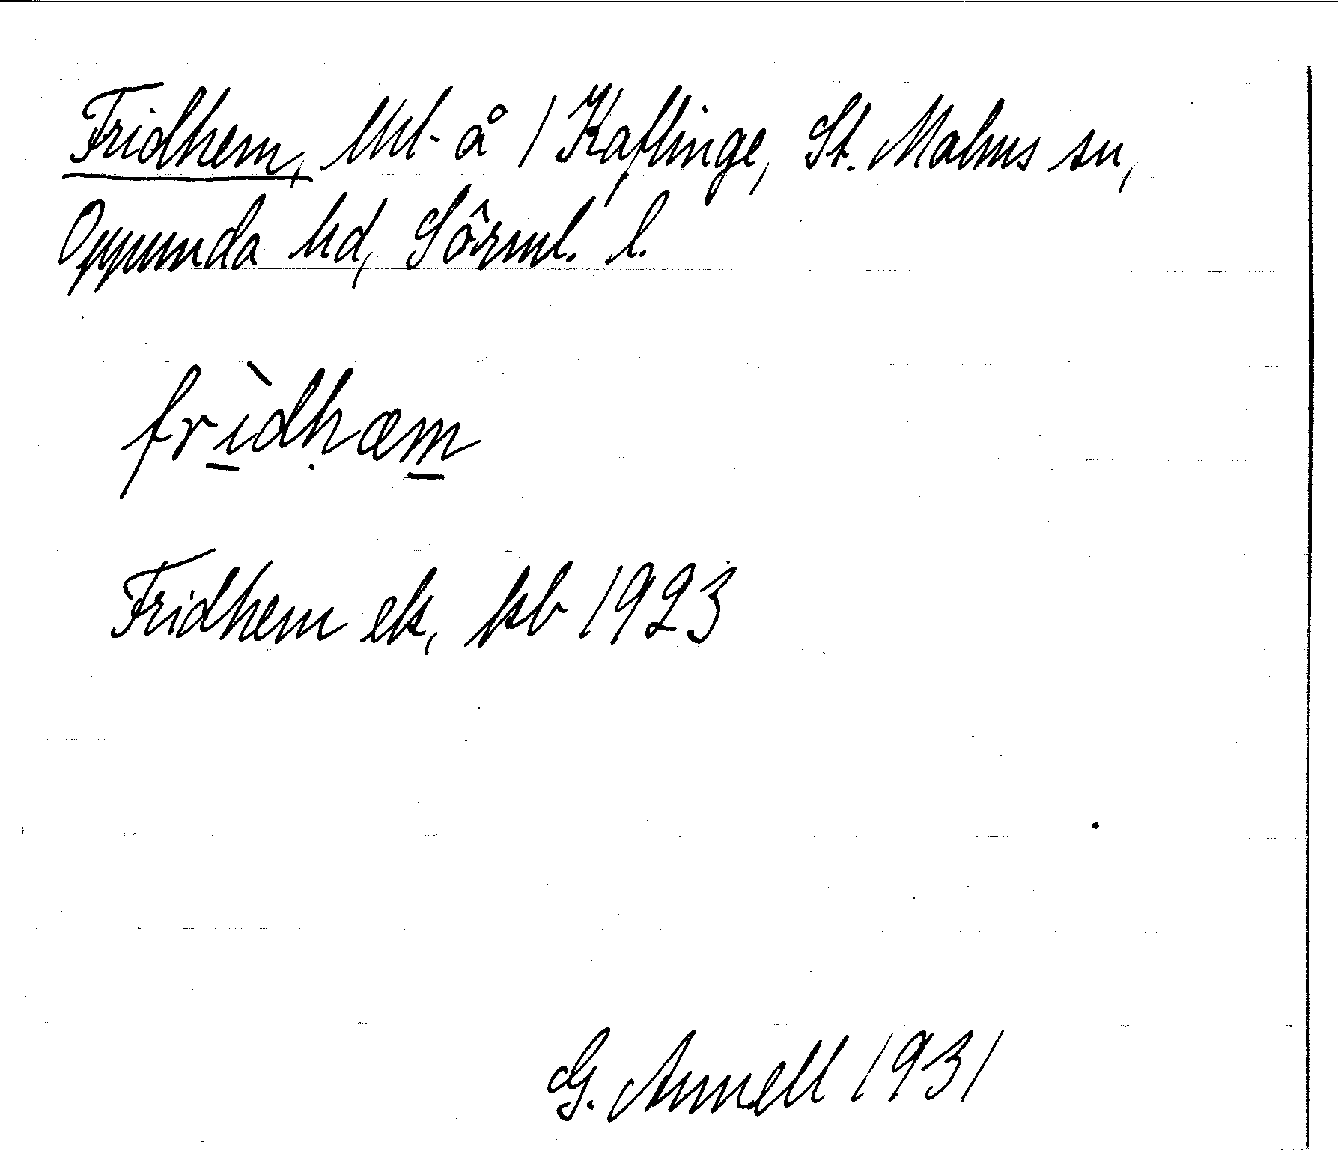 Fridhem, Uht-å / Kaflinge, St. Malms sn,
Oppunda hd, Sörml. l.
frìdhæm
Fridhem ek, kb 1923
G. Annell 1931